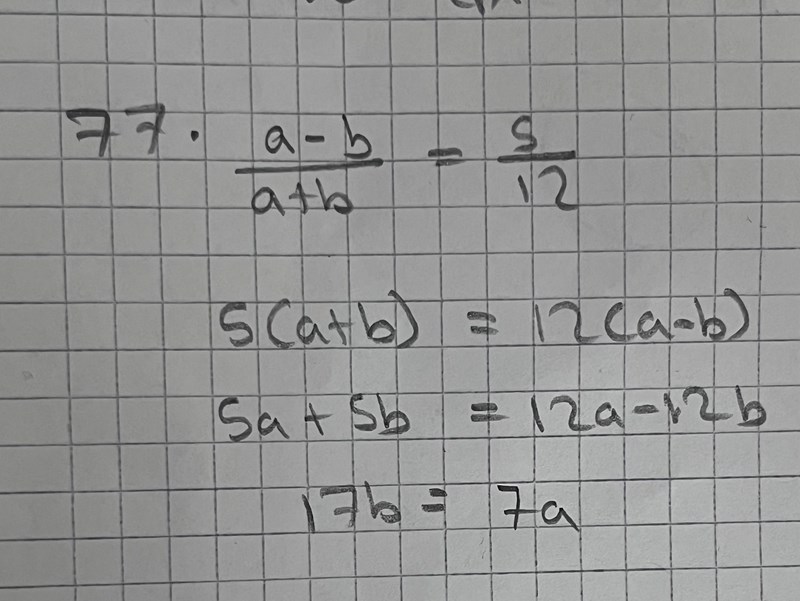 77. a-b/a+b = 5/12
5(a+b) = 12(a-b)
5a+5b = 12a-12b
17b = 7a